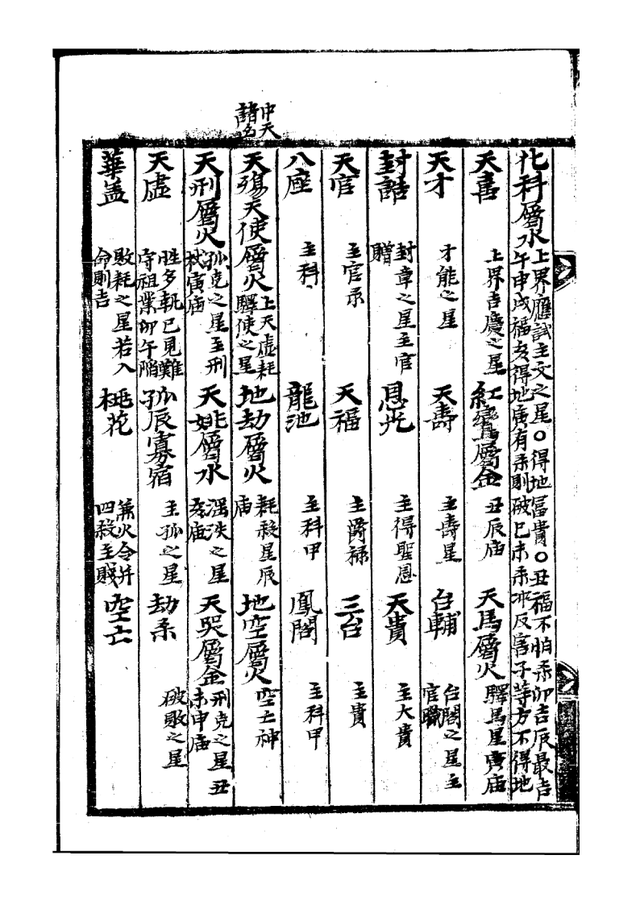 中天
諸名
化科屬水上界應試主文之星○得地富貴○丑福不怕柔卯吉辰最吉
午申戌福亥得地寅有柔則破巳未柔冲反害子等方不得地
天喜 上界吉慶之星 紅鸞屬金 丑辰庙 天馬屬火 驛馬星寅庙
天才 才能之星 天壽 主壽星 台輔 台閣之星主
官職
封誥 封章之星主官
贈 恩光 主得聖恩 天貴 主大貴
天官 主官录 天福 主爵禄 三台 主貴
八座 主科 龍池 主科甲 鳳閣 主科甲
天殤天使屬火上天虛耗
驛使之星 地劫屬火 耗殺星辰
庙 地空屬火 空亡神
天刑屬火 孤克之星主刑
杖寅庙 天姚屬水 之星
亥庙 天哭屬金 刑克之星丑
未申庙
天虛 性多執已見難
守祖業卯午陷 孤辰寡宿 主孤之星 劫柔 破敗之星
華盖 敗耗之星若入
命則吉 桃花 兼火令并
四殺主賤 空亡